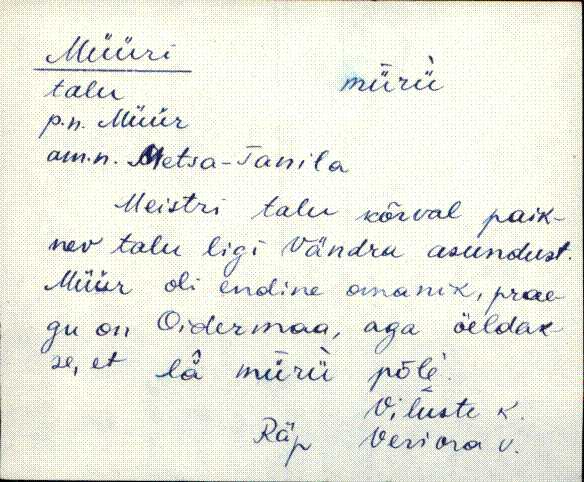 Müüri
mūrù
talu
p.n. Müür
am.n. Metsa-Tanila
Meistri talu kõrval paik-
nev talu ligi Vändra asundust.
Müür oli endine omanik, prae-
gu on Oidermaa, aga öeldak-
se, et lǟ mūrù põlè.
Viluste k.
Räp Veriora v.